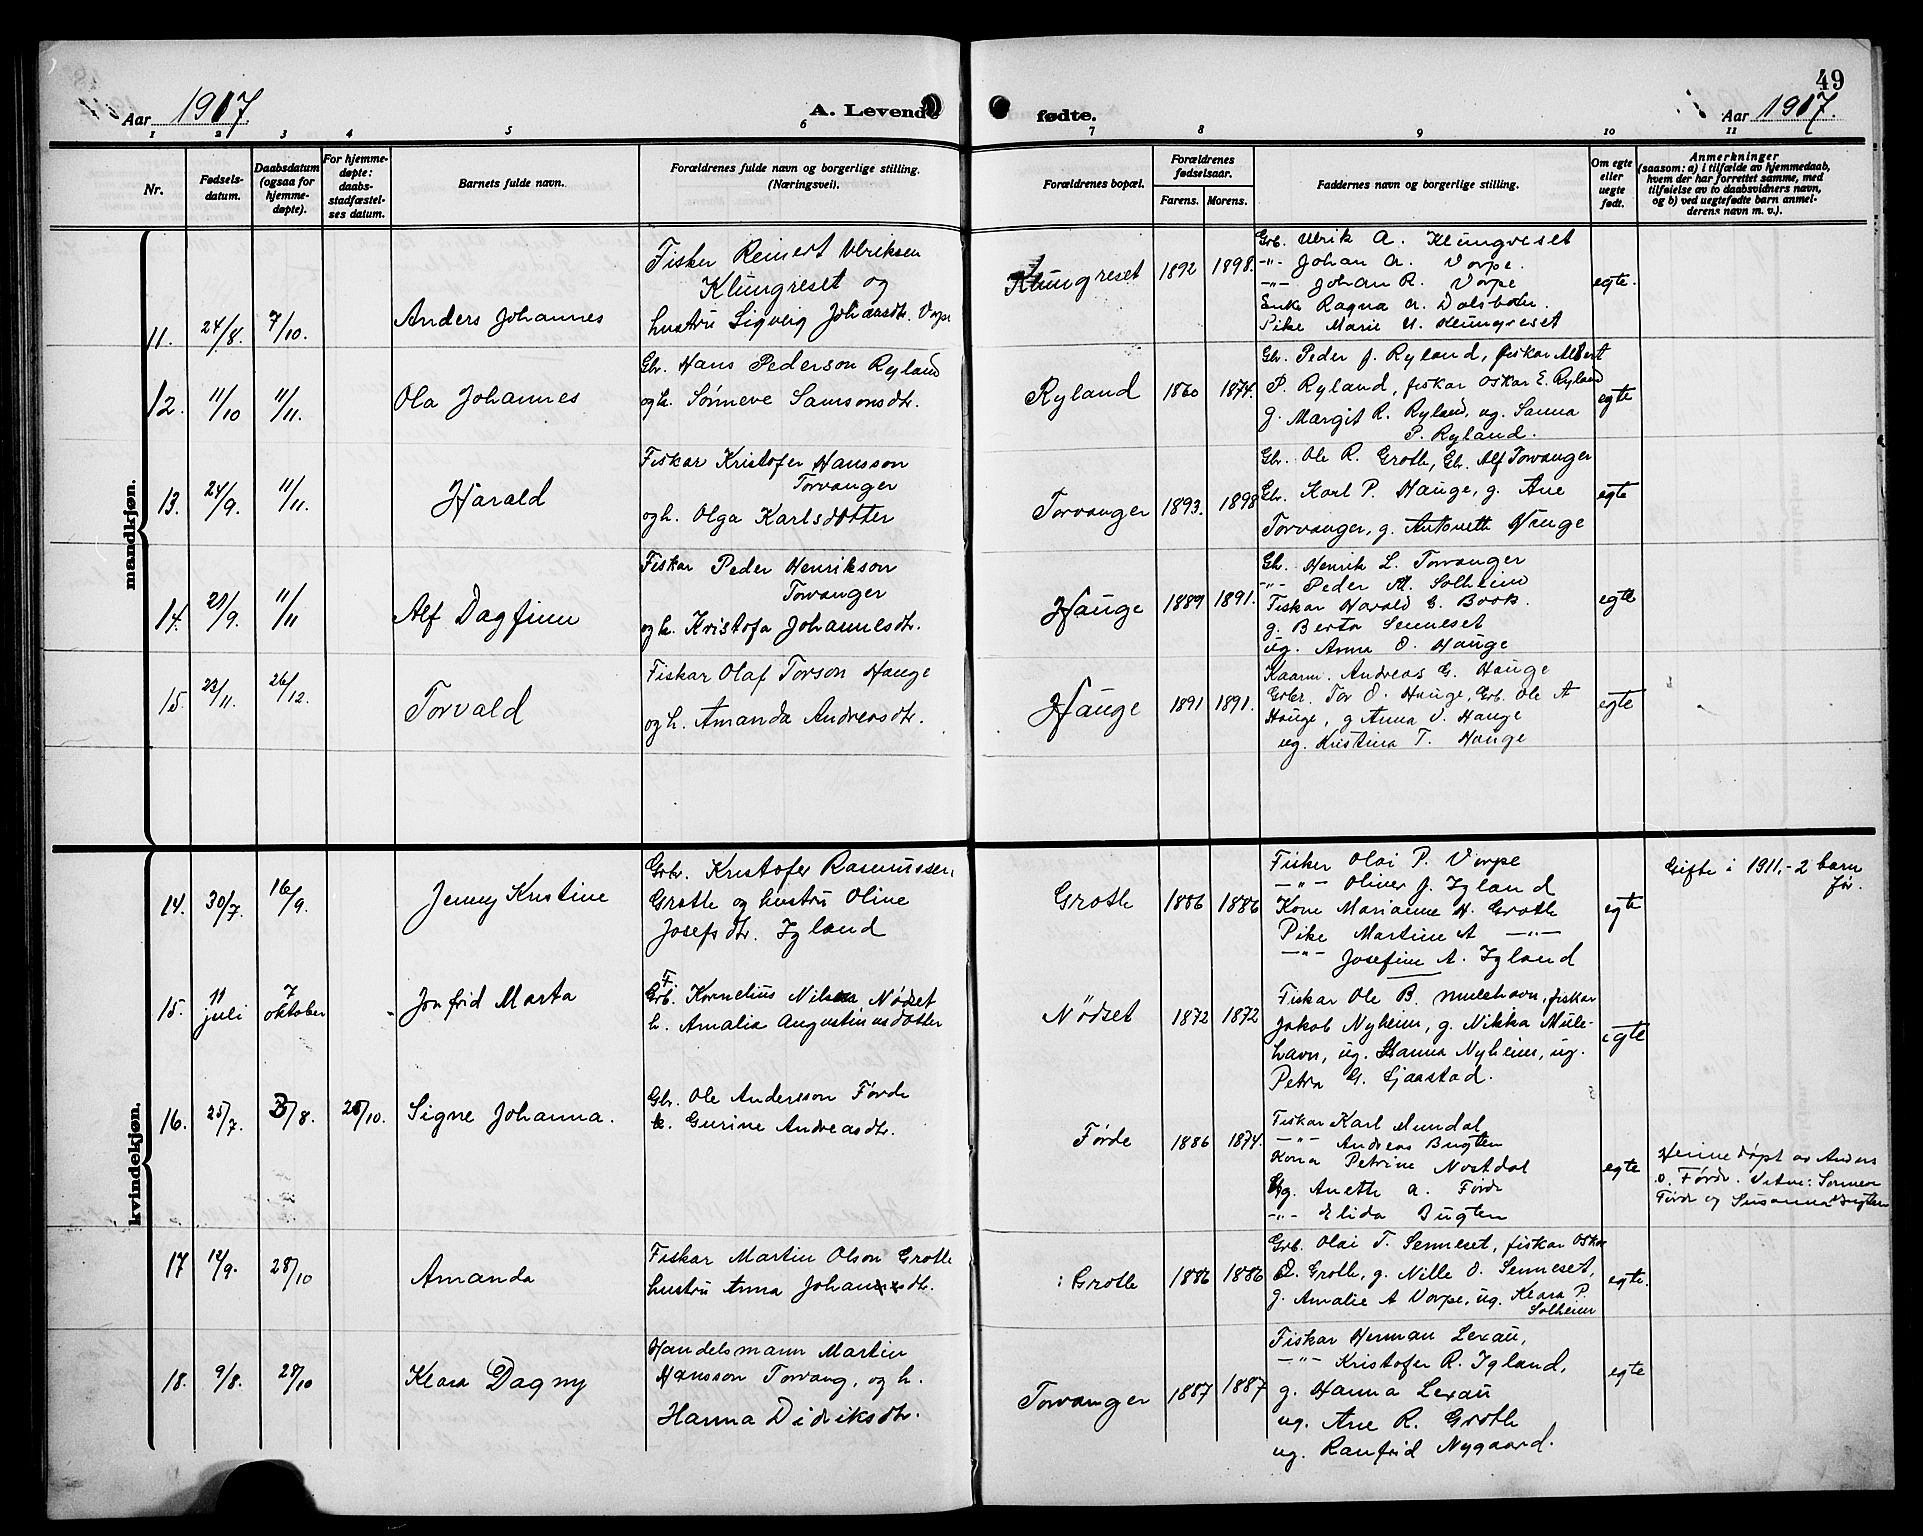 49
Aar 1917.
A. Levende fødte.
Aar 1917.
1 2 3 4 5 6 7 8 9 10 11
Nr.
Fødsels-datum.
Daabsdatum (ogsaa for hjemme-døpte).
For hjemme-døpte: daabs-stadfæstel-ses datum.
Barnets fulde navn.
Forældrenes fulde navn og borgerlige stilling. (Næringsvei).
Forældrenes bopæl.
Forældrenes fødselsaar.
Farens. Morens.
Faddernes navn og borgerlige stilling.
Om egte eller uegte født.
Anmerkninger
(saasom: a) i tilfælde av hjemmedaab, hvem der har forrettet samme, med tilføielse av to daabsvidners navn, og b) ved uegtefødte barn anmel-derens navn m. v.).
mandkjøn.
11. 24/8. 7/10. Anders Johannes
Fisker Reinert Ulriksen
Klungreset og
hustru Signlig Johansdtr. Vorpe
Klungreset 1892 1898.
Grb. Ulrik A. Klungreset
-"- Johan A. Vorpe.
-"- Johan R. Vorpe
Enke Ragna A. Dalsbotn.
Pike Marie U. Klungreset
egte.
12. 11/10 11/11. Ola Johannes
Gbr. Hans Pederson Ryland
og h. Sønneve Samsonsdtr.
Ryland 1860 1874.
Gbr. Peder J. Ryland, fiskar Albert
P. Ryland, fiskar Oskar E. Ryland
g. Margit R. Ryland, ug. Sanna
P. Ryland.
egte
13. 24/9. 11/11. Harald
Fiskar Kristofer Hansson
Torvanger
og h. Olga Karlsdotter
Torvanger 1893. 1898
Gbr. Ole R. Grotle, Gbr. Alf Torvanger
Gbr. Karl P. Hauge, g. Ane
Torvanger, g. Antonette Hauge
egte
14. 29/9. 11/11 Alf Dagfinn
Fiskar Peder Henrikson
Torvanger
og h. Kristofa Johannesdtr.
Hauge 1889 1891.
Gbr. Henrik L. Torvanger
-"- Peder M. Solheim
Fiskar Harald E. Book.
g. Berta Senneset
ug. Anna O. Hauge
egte
15. 22/11. 26/12. Torvald
Fiskar Olaf Torson Hauge
og h. Amanda Andreasdtr.
Hauge 1891 1891.
Kaarm. Andreas G. Hauge
Grbr. Tor O. Hauge, Grb. Ole A
Hauge, g Anna O. Hauge
ug. Kristina T. Hauge
egte
kvindekjøn.
14. 30/7. 16/9. Jenny Kristine
Grbr. Kristofer Rasmussen
Grotle og hustru Oline
Josefsdtr. Igland
Grotle 1886 1886
Fisker Olai P. Vorpe
-"- Oliver J. Igland
Kone Marianne H. Grotle
Pike Martine A -"-
-"- Josefine A. Igland
egte
Gifte i 1911, - 2 barn
før.
15. 11 juli 7 oktober Jonfrid Marta
F. Grb. Kornelius Nilsen Nødset
h. Amalia Augustinusdotter
Nødset 1872 1872
Fiskar Ole B. Mulehavn, fiskar
Jakob Nyheim, g. Nikka Mule-
havn, ug. Hanna Nyheim, ug.
Petra G. Gjaastad.
egte
16. 25/7. 3/8. 28/10. Signe Johanna.
Gbr. Ole Andersson Førde
h. Gurine Andreasdtr.
Førde 1886 1874.
Fiskar Karl Mundal
-"- Andreas Bugten
Kona Petrine Nostdal
Ug. Anette A. Førde
-"- Elida Bugten
egte
Heime døpt av Anders
O. Førde. Vitne: Sønneve
Førde og Susanna Bugten
17 12/9. 28/10 Amanda
Fiskar Martin Olson Grotle
hustru Anna Johansdtr.
Grotle 1886 1886
Grb. Olai T. Senneset, fiskar Oskar
O. Grotle, g. Nille O. Senneset,
g. Amalie A Vorpe, ug. Klara P.
Solheim
egte.
18. 9/8. 28/10 Klara Dagny
Handelsmann Martin
Hansson Torvang, og h.
Hanna Didriksdtr.
Torvanger 1887 1887
Fiskar Herman Lexau,
-"- Kristofer R. Igland,
g. Hanna Lexau
ug. Ane R. Grotle
ug. Ranfrid Nygaard.
egte